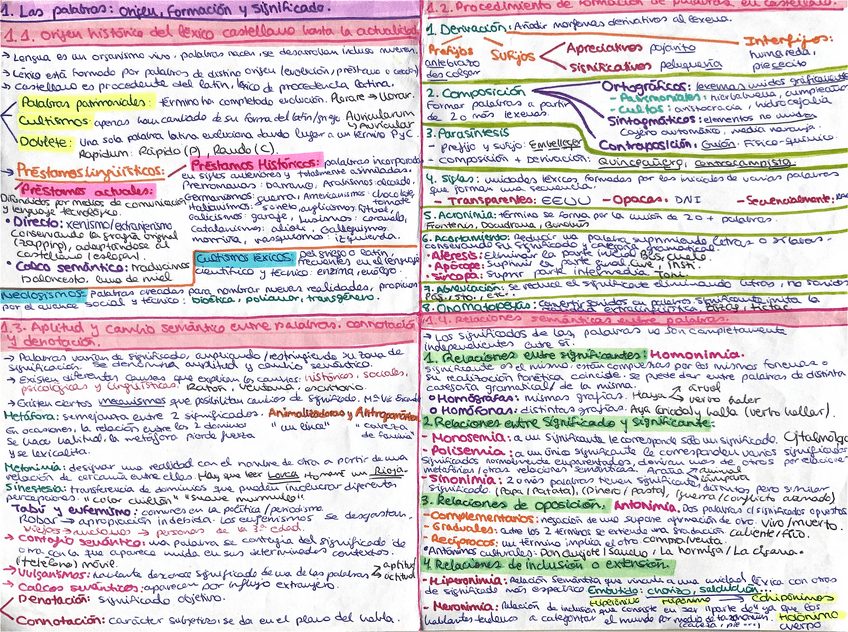 1. Las palabras: origen, formación y significado.
1.1. Origen histórico del léxico castellano hasta la actualidad
→ Lengua es un organismo vivo, palabras nacen, se desarrollan incluso mueren.
→ Léxico está formado por palabras de distinto origen (evolución, préstamo o creación)
→ Castellano es procedente del latín, léxico de procedencia latina.
Palabras patrimoniales: término ha completado evolución. Plorare → llorar.
Cultismos: apenas han cambiado de su forma del latín/griego Auricularum
→ Auricular
Doblete: una sola palabra latina evoluciona dando lugar a un término P y C.
Rapidum: Rápido (P), Raudo (C).
→ Préstamos lingüísticos:
Préstamos Históricos: palabras incorporadas
en siglos anteriores y totalmente asimiladas.
Prerromanas: barranco, Arabismos: alcalde,
Germanismos: guerra, Americanismos: chocolate,
tomate
Italianismos: soneto, anglicismos: fútbol,
galicismos: garaje, lusismos: caramelo,
catalanismos: alioli, Galleguismos:
morriña, vasquismos: izquierda.
Préstamos actuales:
Difundidos por medios de comunicación
y lenguaje tecnológico.
• Directo: xenismo/extranjerismo
conservando la grafía original
(zapping), adaptándose al
castellano (eslogan).
• Calco semántico: traducimos
baloncesto, luna de miel
Cultismos léxicos: Del griego o latín,
frecuentes en el lenguaje
científico y técnico: enzima,
Neologismos: Palabras creadas para nombrar nuevas realidades, propios
por el avance social y técnico: bioética, poliamor, transgénero.
1.2. Procedimiento de formación de palabras en castellano.
1. Derivación: Añadir morfemas derivativos al lexema.
Prefijos
antebrazo
descolgar
Sufijos
Apreciativos pajarito
Significativos peluquería
Interfijos:
humareda,
piececito
2. Composición
Formar palabras a partir
de 2 o más lexemas.
Ortográficos: lexemas unidos gráficamente
- Patrimoniales: hierbabuena, cumpleaños
- Cultos: aristocracia, hidrocefalia
Sintagmáticos: elementos no unidos
Cajero automático, media naranja.
Contraposición: Guión: Físico-químico.
3. Parasíntesis
- prefijo y sufijo: Envellecer
- composición + derivación: Quinceañero, Centrocampista
4. Siglas: unidades léxicas formadas por las iniciales de varias palabras
que forman una secuencia.
- Transparentes: EEUU - Opacas: DNI - Secuencialmente:
5. Acronimia: término se forma por la unión de 2 o + palabras.
6. Acortamiento: Reducir una palabra suprimiendo letras o sílabas
conservando su significado y categoría gramatical.
• Aféresis: Eliminar la parte inicial
• Apócope: Suprimir la parte final
• Síncopa: Suprimir parte intermedia
7. Abreviación: Se reduce el significante eliminando letras, no sonidos
8. Onomatopeyas: Convertir sonidos en palabra
1.3. Aptitud y cambio semántico entre palabras: connotación
y denotación.
→ Palabras varían de significado, ampliando/restringiendo su zona de
significación. Se denomina amplitud y cambio semántico.
→ Existen diferentes causas que explican los cambios: históricas, sociales,
psicológicas y lingüísticas. Ratón, ventana, escritorio
→ Existen ciertos mecanismos que posibilitan cambios de significado.
Metáfora: semejanza entre 2 significados. Animalizadoras y
En ocasiones, la relación entre los 2 dominios "un lince" "cabeza
se hace habitual, la metáfora pierde fuerza de familia"
y se lexicaliza.
Metonimia: designar una realidad con el nombre de otra a partir de una
relación de cercanía entre ellas. Hay que leer Lorca. Tomaré un Rioja
Sinestesia: transferencia de dominios que pueden involucrar diferentes
percepciones "Un color chillón" "suave murmullo".
Tabú y eufemismo: comunes en la política/periodismo.
Robar → apropiación indebida. Los eufemismos se desgastan.
viejos → ancianos → personas de la 3ª edad.
→ Contagio semántico: una palabra se contagia del significado de
otra con la que aparece unida en sus determinados contextos.
(teléfono) móvil.
→ Vulgarismos: hablante desconoce significado de una de las palabras aptitud
actitud
→ Calcos semánticos: aparecen por influjo extranjero.
Denotación: significado objetivo.
Connotación: carácter subjetivo, se da en el plano del habla.
1.4. Relaciones semánticas entre palabras.
→ Los significados de las palabras no son completamente
independientes entre sí.
1. Relaciones entre significantes: Homonimia.
significante es el mismo, están compuestas por los mismos fonemas o
su realización fonética coincide. Se puede dar entre palabras de distinta
categoría gramatical o de la misma.
• Homógrafas: mismas grafías. Haya árbol
verbo haber
• Homófonas: distintas grafías. Aya (criada) y halla (verbo hallar).
2. Relaciones entre significado y significante:
- Monosemia: a un significante le corresponde sólo un significado. Oftalmólogo
- Polisemia: a un único significante le corresponden varios significados
significados normalmente emparentados, derivan unos de otros por relaciones
metafóricas/otras relaciones semánticas. Araña animal
lámpara
- Sinonimia: 2 o más palabras tienen significante distinto, pero similar
significado. (Papa/Patata), (Dinero/pasta), (guerra/conflicto armado)
3. Relaciones de oposición. Antonimia. Dos palabras c/ significados opuestos
- Complementarios: negación de uno supone afirmación de otro. vivo/muerto.
- Graduales: entre los 2 términos se entiende otra gradación caliente/frío.
- Recíprocos: un término implica el otro comprar/vender.
• Antónimos culturales: Don Quijote/Sancho / La hormiga/La cigarra.
4. Relaciones de inclusión o extensión.
- Hiperonimia: Relación Semántica que vincula a una unidad léxica con otras
de significado más específico. Embutido: chorizo, salchichón... → Cohipónimos
Hiperónimo Hipónimo
- Meronimia: Relación de inclusión que consiste en ser parte de ya que los
hablantes tienden a categorizar el mundo por medio de taxonomías. Holónimo
(cabeza, pie...) cuerpo